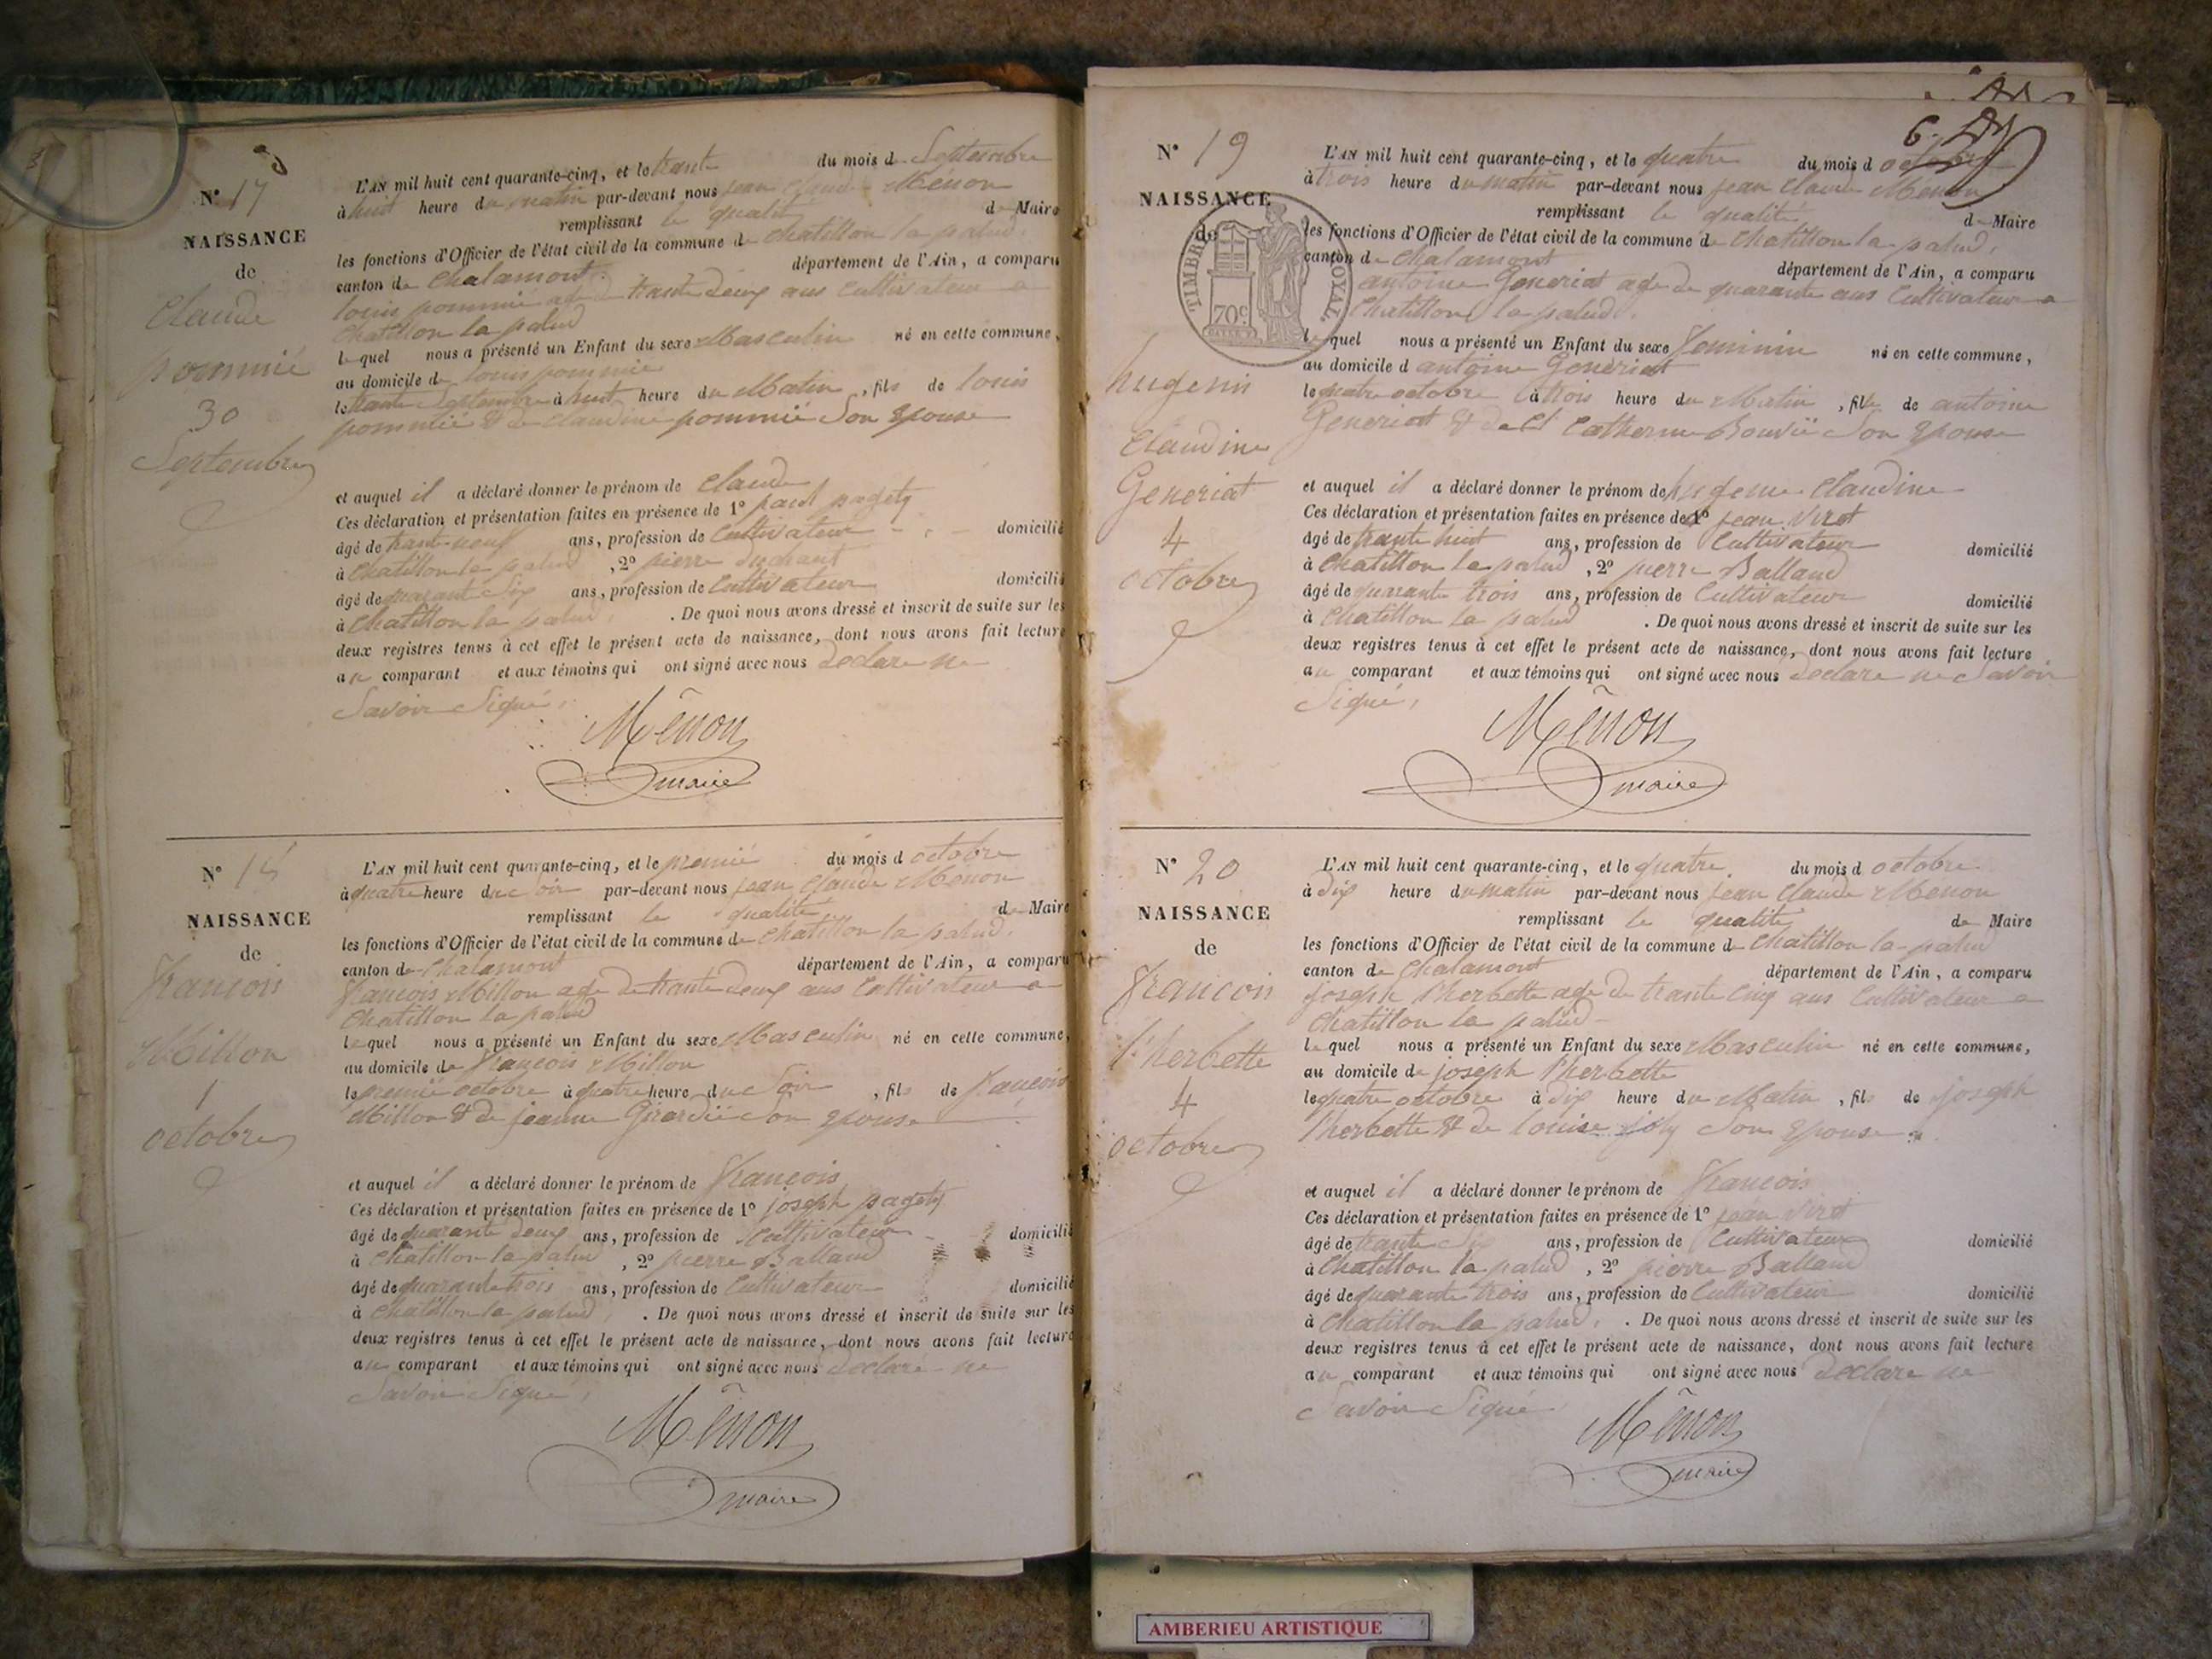 N° 17
NAISSANCE
de
Claude
pommié
30
Septembre
L'AN mil huit cent quarante-cinq, et le trante du mois d Septembre
à huit heure du matin par-devant nous jean Claude Ménon
remplissant la qualité de Maire
les fonctions d'Officier de l'état civil de la commune de Chatillon la palud.
canton de Chalamont. département de l'Ain, a comparu
louis pommié agé de trante deux ans Cultivateur a
Chatillon la palud
lequel nous a présenté un Enfant du sexe Masculin né en cette commune,
au domicile de louis pommié
le trante Septembre à huit heure du Matin, fils de louis
pommié & de Claudine pommié Son Epouse
et auquel il a déclaré donner le prénom de Claude
Ces déclaration et présentation faites en présence de 1° paul pagety
âgé de trante-neuf ans, profession de Cultivateur domicilié
à Chatillon la palud, 2° pierre
âgé de quarant Six ans, profession de Cultivateur domicilié
à Chatillon la palud, . De quoi nous avons dressé et inscrit de suite sur les
deux registres tenus à cet effet le présent acte de naissance, dont nous avons fait lecture
au comparant et aux témoins qui ont signé avec nous declare ne
Savoir Signé,
Mênon
maire
N° 18
NAISSANCE
de
francois
Millon
1
octobre
L'AN mil huit cent quarante-cinq, et le premié du mois d octobre
à quatre heure du Soir par-devant nous jean Claude Menon
remplissant la qualité de Maire
les fonctions d'Officier de l'état civil de la commune de Chatillon la palud.
canton de Chalamont département de l'Ain, a comparu
francois Millon age de trante deux ans Cultivateur a
Chatillon la palud
lequel nous a présenté un Enfant du sexe Masculin né en cette commune,
au domicile de francois Millon
le premié octobre à quatre heure du Soir, fils de francois
Millon & de jeanne Girardié Son Epouse
et auquel il a déclaré donner le prénom de francois
Ces déclaration et présentation faites en présence de 1° joseph pagety
âgé de quarante deux ans, profession de Cultivateur domicilié
à Chatillon la palud, 2° pierre Balland
âgé de quarante trois ans, profession de Cultivateur domicilié
à Chatillon la palud, . De quoi nous avons dressé et inscrit de suite sur les
deux registres tenus à cet effet le présent acte de naissance, dont nous avons fait lecture
au comparant et aux témoins qui ont signé avec nous declaré ne
Savoir Signe,
Mênon
maire
6
N° 19
NAISSANCE
de
TIMBRE ROYAL
70 c
hugenis
Claudine
Generiat
4
octobre
L'AN mil huit cent quarante-cinq, et le quatre du mois d octobre
à trois heure du matin par-devant nous jean Claude Menon
remplissant la qualité de Maire
les fonctions d'Officier de l'état civil de la commune de Chatillon la palud,
canton de Chalamont département de l'Ain, a comparu
antoine Generiat age de quarante ans Cultivateur a
Chatillon la palud.
lequel nous a présenté un Enfant du sexe feminin né en cette commune,
au domicile d antoine Generiat
le quatre octobre à trois heure du Matin, fille de antoine
Generiat & de Catherine Bouvié Son Epouse
et auquel il a déclaré donner le prénom de hugenie Claudine
Ces déclaration et présentation faites en présence de 1° jean Virot
âgé de trante huit ans, profession de Cultivateur domicilié
à Chatillon la palud, 2° pierre Balland
âgé de quarante trois ans, profession de Cultivateur domicilié
à Chatillon la palud . De quoi nous avons dressé et inscrit de suite sur les
deux registres tenus à cet effet le présent acte de naissance, dont nous avons fait lecture
au comparant et aux témoins qui ont signé avec nous declare ne Savoir
Signé,
Mênon
maire
N° 20
NAISSANCE
de
francois
l'herbette
4
octobre
L'AN mil huit cent quarante-cinq, et le quatre du mois d octobre
à dix heure du matin par-devant nous jean Claude Menon
remplissant la qualité de Maire
les fonctions d'Officier de l'état civil de la commune de Chatillon la palud
canton de Chalamont département de l'Ain, a comparu
joseph l'herbette age de trante cinq ans Cultivateur a
Chatillon la palud
lequel nous a présenté un Enfant du sexe Masculin né en cette commune,
au domicile de joseph l'herbette
le quatre octobre à dix heure du Matin, fils de joseph
l'herbette & de louise joly Son Epouse
et auquel il a déclaré donner le prénom de francois
Ces déclaration et présentation faites en présence de 1° jean Virot
âgé de trante Six ans, profession de Cultivateur domicilié
à Chatillon la palud, 2° pierre Balland
âgé de quarante trois ans, profession de Cultivateur domicilié
à Chatillon la palud, . De quoi nous avons dressé et inscrit de suite sur les
deux registres tenus à cet effet le présent acte de naissance, dont nous avons fait lecture
au comparant et aux témoins qui ont signé avec nous declare ne
Savoir Signé
Mênon
maire
AMBERIEU ARTISTIQUE